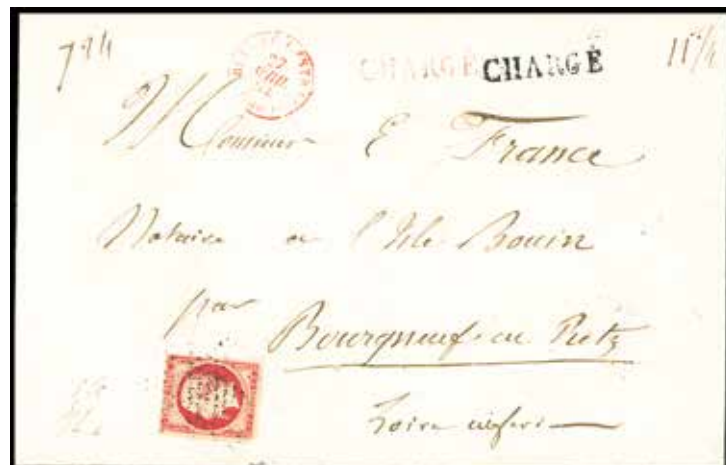 CHARGÉ CHARGÉ
Monsieur E France
Notaire a l'Isle Bouin
par
Bourgneuf en Retz
Loire inferi